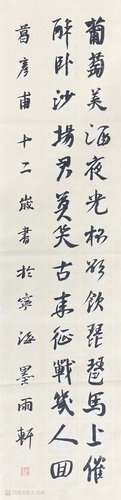 葡萄美酒夜光杯欲飲琵琶馬上催
醉臥沙場君莫笑古來征戰幾人回
葛彥甫十二歲書於寧海墨雨軒